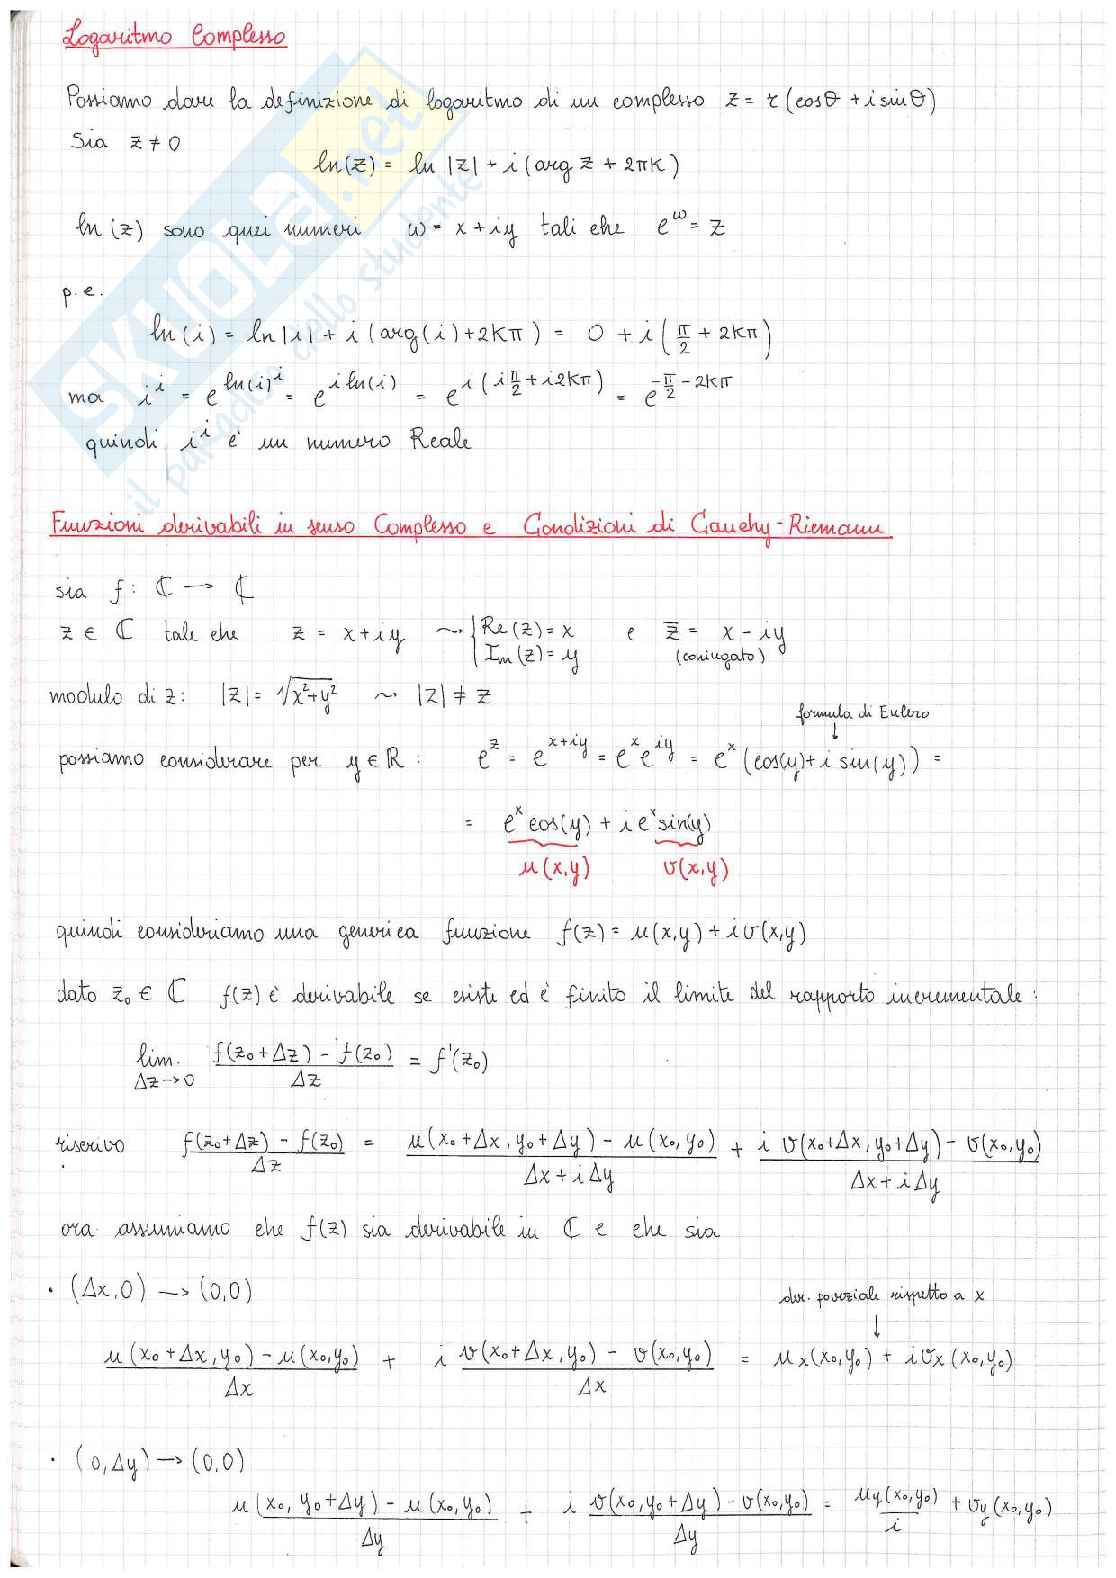 Logaritmo Complesso
Possiamo dare la definizione di logaritmo di un complesso z = r (cosθ + i sinθ)
Sia z ≠ 0
ln(z) = ln |z| + i (arg z + 2πk)
ln(z) sono quei numeri ω = x + iy tali che e^ω = z
p.e.
ln(i) = ln|i| + i (arg(i) + 2kπ) = 0 + i (π/2 + 2kπ)
ma i^i = e^{ln(i)^i} = e^{i ln(i)} = e^{i(iπ/2 + i2kπ)} = e^{-π/2 - 2kπ}
quindi i^i è un numero Reale
Funzioni derivabili in senso Complesso e Condizioni di Cauchy-Riemann
sia f: ℂ → ℂ
z ∈ ℂ tale che z = x + iy ⤳ { Re(z) = x e z̄ = x - iy
Im(z) = y (coniugato)
modulo di z: |z| = √(x²+y²) ⤳ |z| ≠ z
formula di Eulero
↓
possiamo considerare per y ∈ ℝ: e^z = e^{x+iy} = e^x e^{iy} = e^x (cos(y) + i sin(y)) =
= e^x cos(y) + i e^x sin(y)
u(x,y) v(x,y)
quindi consideriamo una generica funzione f(z) = u(x,y) + i v(x,y)
dato z₀ ∈ ℂ f(z) è derivabile se esiste ed è finito il limite del rapporto incrementale:
lim_{Δz→0} (f(z₀ + Δz) - f(z₀))/Δz = f'(z₀)
riscrivo (f(z₀+Δz) - f(z₀))/Δz = (u(x₀+Δx, y₀+Δy) - u(x₀,y₀))/(Δx + iΔy) + i (v(x₀+Δx, y₀+Δy) - v(x₀,y₀))/(Δx + iΔy)
ora assumiamo che f(z) sia derivabile in ℂ e che sia
· (Δx,0) → (0,0)
der. parziale rispetto a x
↓
(u(x₀+Δx, y₀) - u(x₀,y₀))/Δx + i (v(x₀+Δx, y₀) - v(x₀,y₀))/Δx = u_x(x₀,y₀) + i v_x(x₀,y₀)
· (0,Δy) → (0,0)
(u(x₀, y₀+Δy) - u(x₀,y₀))/Δy + i (v(x₀,y₀+Δy) - v(x₀,y₀))/Δy = u_y(x₀,y₀)/i + v_y(x₀,y₀)
SKUOLA.net
il paradiso dello studente